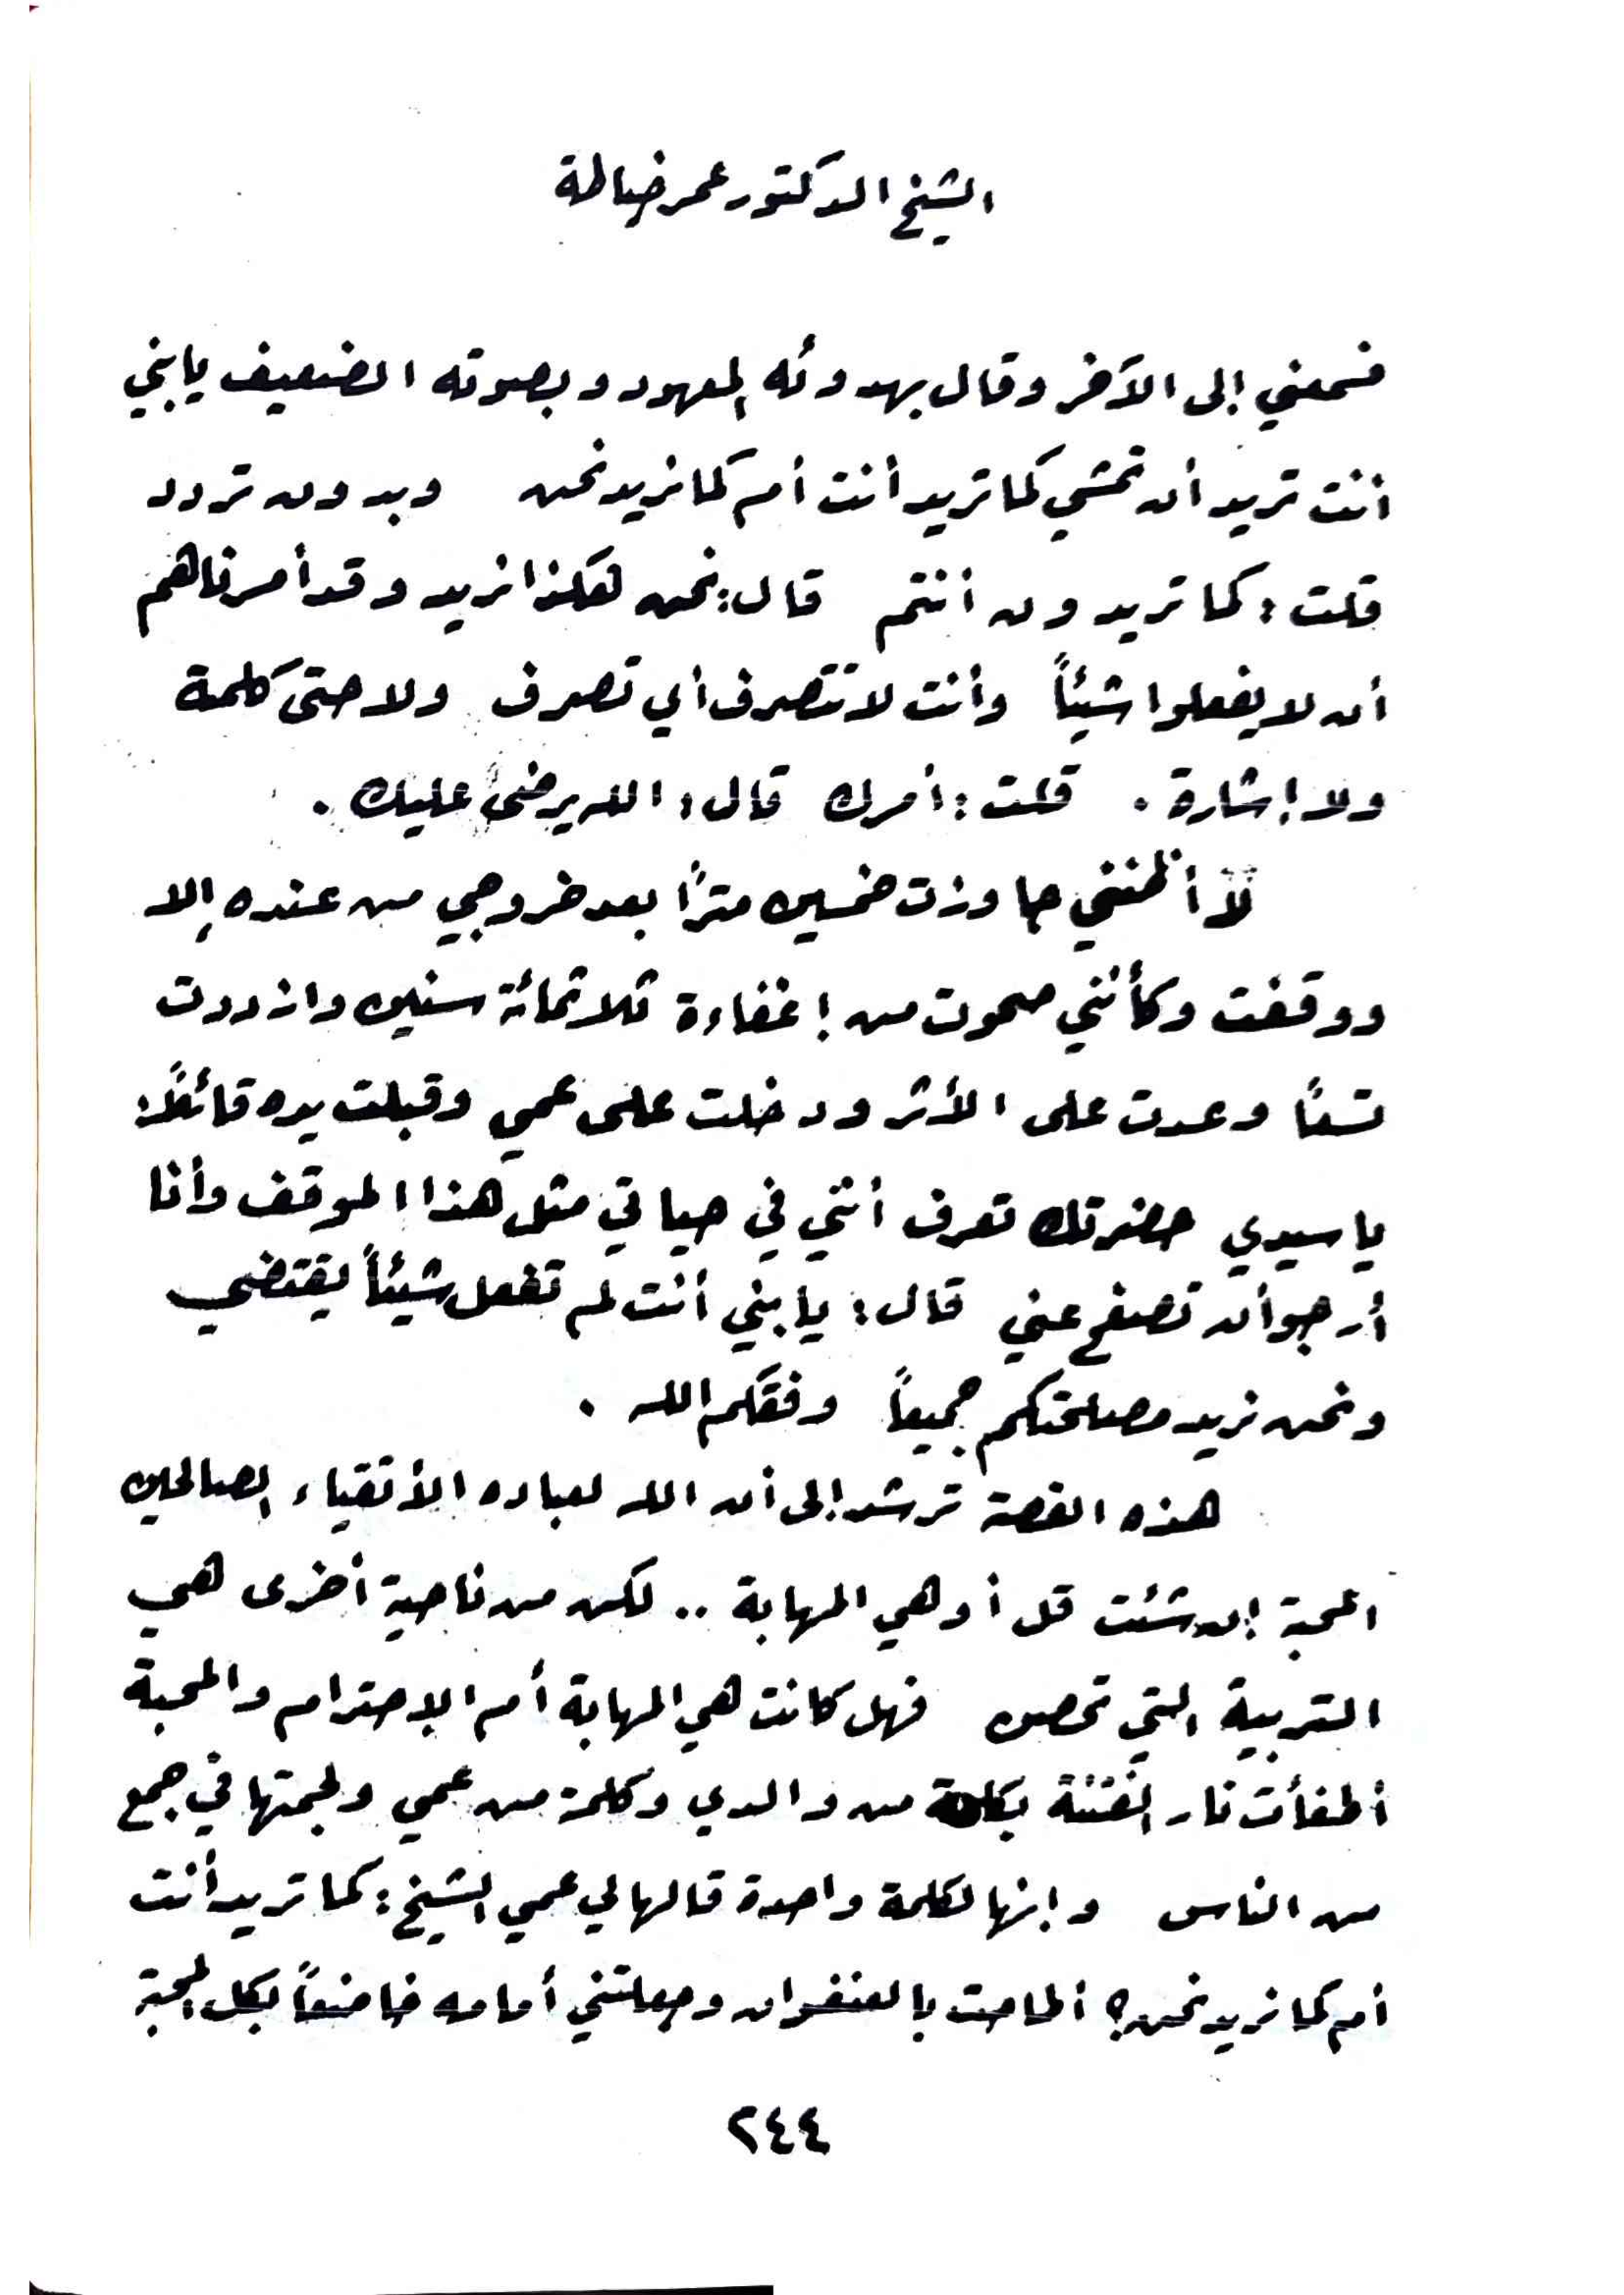 الشيخ الدكتور عمر خياطة
فسمعني إلى الآخر وقال بهدوئه المعهود وبصوته الضعيف يا بني
أنت تريد أن تمشي كما تريد أنت أم كما نريد نحن وبدون تردد
قلت : كما تريدون أنتم قال : نحن هكذا نريد وقد أمرناهم
أن لا يفعلوا شيئاً وأنت لا تتصرف أي تصرف ولا حتى كلمة
ولا إشارة . قلت : أمرك قال : الله يرضى عليك .
لا أظنني جاوزت خمسين متراً بعد خروجي من عنده إلا
ووقفت وكأنني صحوت من إغفاءة ثلاثمائة سنين وازددت
تسعاً وعدت على الأثر ودخلت على عمي وقبلت يده قائلاً :
يا سيدي حضرتك تعرف أنني في حياتي مثل هذا الموقف وأنا
أرجو أن تصفح عني قال : يا بني أنت لم تفعل شيئاً يقتضي
ونحن نريد مصلحتكم جميعاً وفقكم الله .
هذه القصة ترشد إلى أن الله لعباده الأتقياء الصالحين
المحبة إن شئت قل أو هي المهابة .. لكن من ناحية أخرى هي
التربية التي تحصن فهل كانت هي المهابة أم الإحترام والمحبة
أطفأت نار الفتنة بكلمة من والدي وكلمة من عمي ولجمتها في جمع
من الناس وإنها لكلمة واحدة قالها لي عمي الشيخ : كما تريد أنت
أم كما نريد نحن؟ أطاحت بالعنفوان وجعلتني أمامه خاضعاً بكل المحبة
٢٤٤